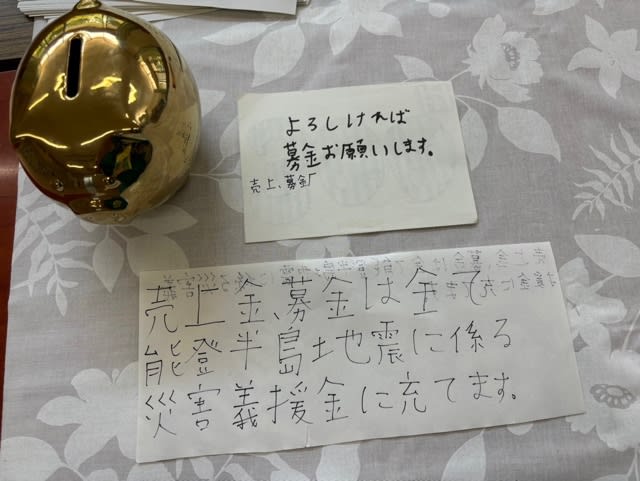 よろしければ
募金お願いします。
売上、募金
売上金、募金は全て
能登半島地震に係る
災害義援金に充てます。